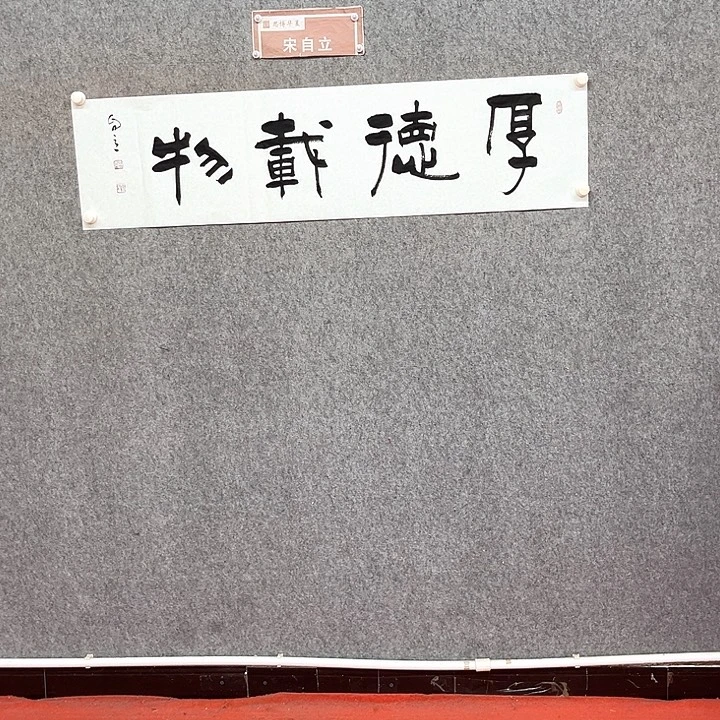 宋自立
厚德載物
自立